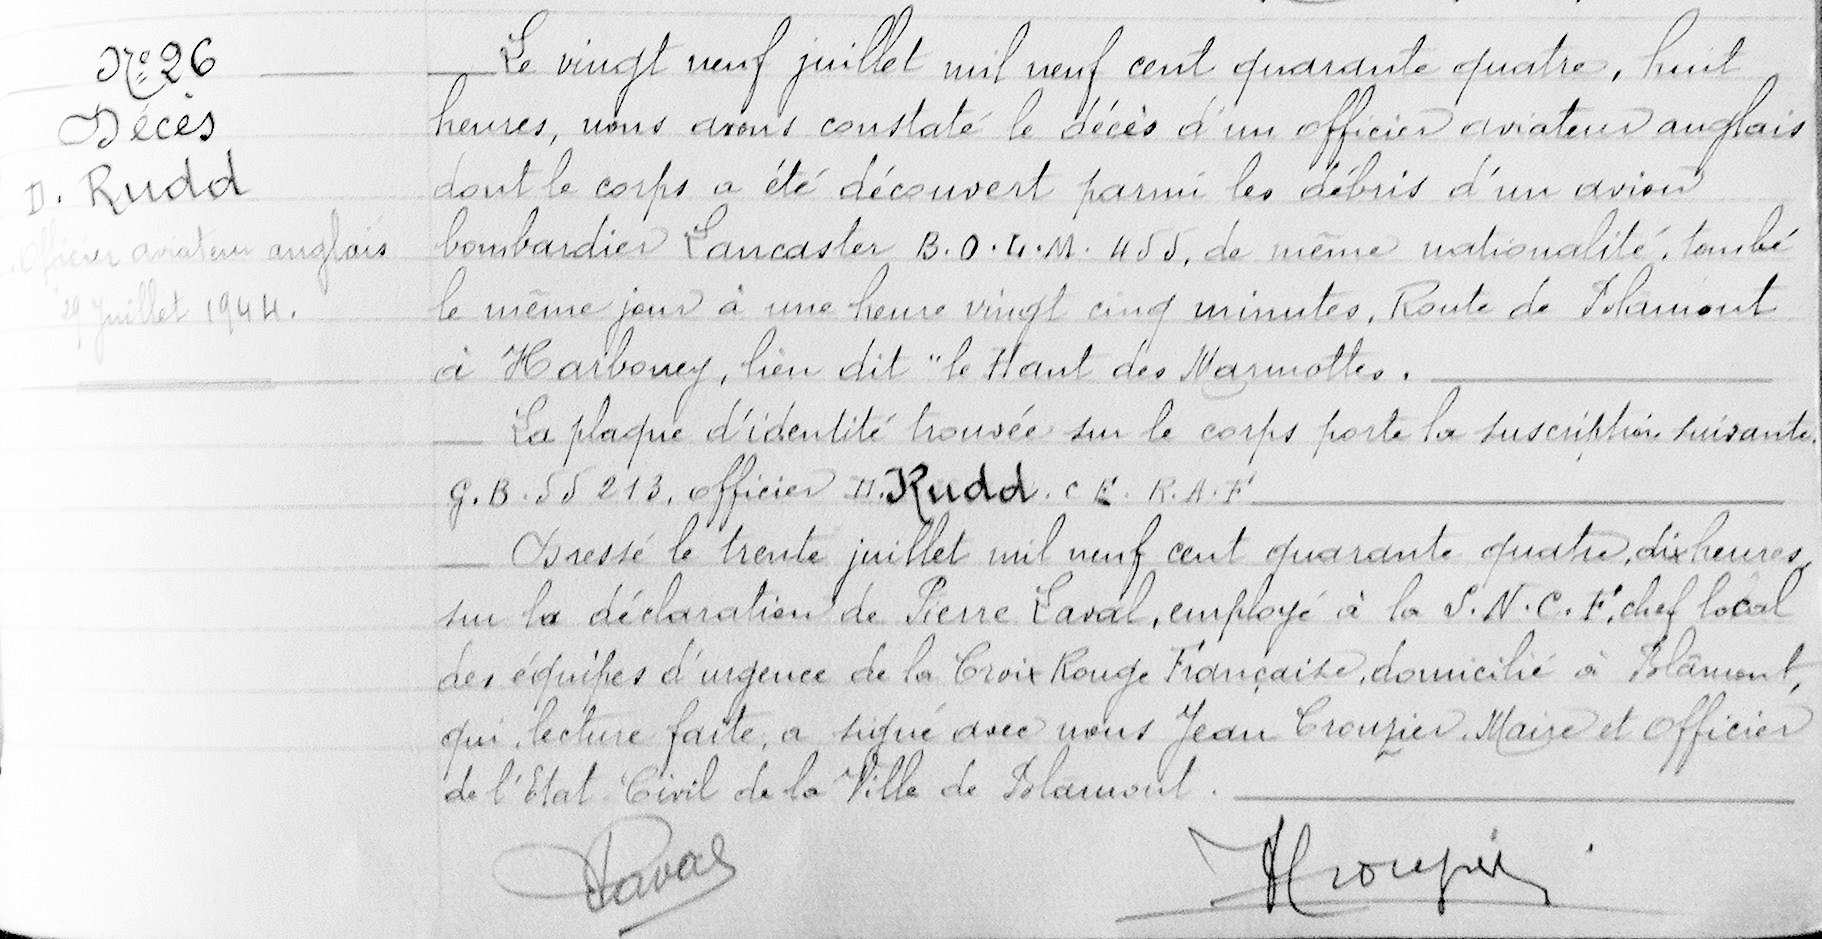 Nº 26
Décès
D. Rudd
Officier aviateur anglais
29 Juillet 1944.
Le vingt neuf juillet mil neuf cent quarante quatre, huit
heures, nous avons constaté le décès d'un officier aviateur anglais
dont le corps a été découvert parmi les débris d'un avion
bombardier Lancaster B.O.L.M. 455, de même nationalité, tombé
le même jour à une heure vingt cinq minutes, Route de Blamont
à Harbouey, lieu dit "le Haut des Marmottes.
La plaque d'identité trouvée sur le corps porte la suscription suivante.
G.B. 55213, officier D. Rudd. C E. R.A.F
Dressé le trente juillet mil neuf cent quarante quatre, dix heures,
sur la déclaration de Pierre Laval, employé à la S.N.C.F, chef local
des équipes d'urgence de la Croix Rouge Française, domicilié à Blâmont,
qui, lecture faite, a signé avec nous Jean Crouzier, Maire et Officier
de l'Etat Civil de la Ville de Blamont.
PLaval
JCrouzier